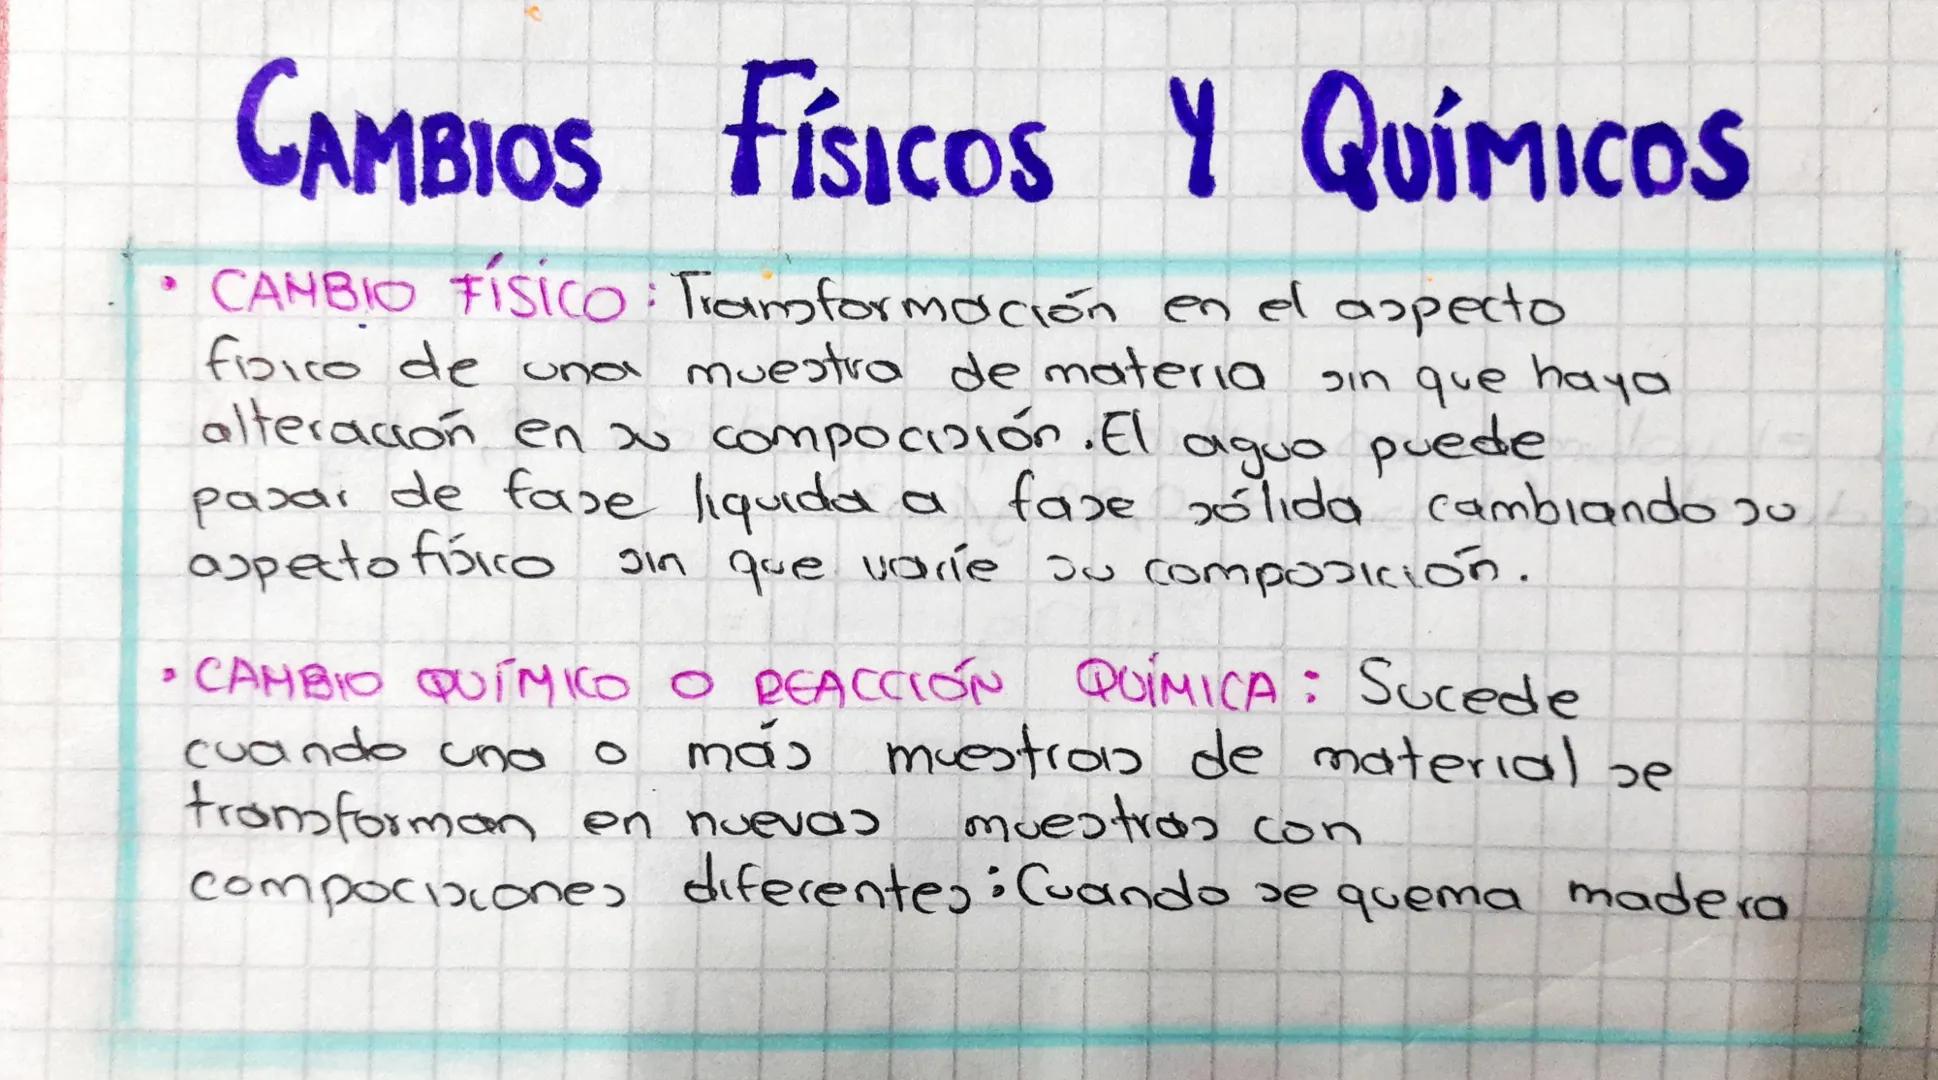 CAMBIOS FÍSICOS Y QUÍMICOS
• CAMBIO FÍSICO: Transformación en el aspecto
físico de una muestra de materia sin que haya
alteración en su compocisión. El agua puede
pasar de fase liquida a fase sólida cambiando su
aspecto físico sin que varíe su composición.
• CAMBIO QUÍMICO O REACCIÓN QUÍMICA: Sucede
cuando una o más muestras de material se
transforman en nuevas muestras con
compocisiones diferentes: Cuando se quema madera